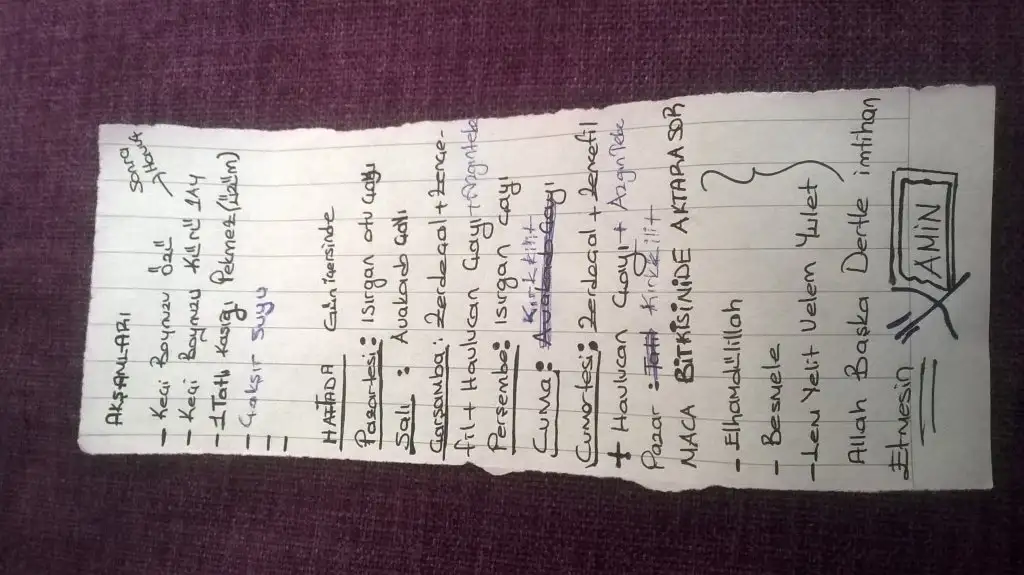 AKŞAMLARI
- Keçi Boynuzu Özü Sonra Havuç
- Keçi Boynuzu KÜRÜ 1AY
- 1 Tatlı Kaşığı Pekmez (üzüm)
- Çakşır Suyu
-
-
HAFTADA Gün içersinde
Pazartesi: Isırgan otu çayı
Salı : Avakado çayı
Çarşamba: Zerdeçal + Zence-
fil + Havlucan Çayı +
Perşembe: Isırgan çayı
CUMA: Kırkkilit Avakado Çayı
Cumartesi: Zerdeçal + Zencefil
+ Havlucan Çayı +
Pazar : Kırkkilit
MACA BİTKİSİNİDE AKTARA SOR
- Elhamdülillah
- Besmele
- Lem Yelit Velem Yulet
Allah Başka Dertle imtihan
Etmesin
AMİN